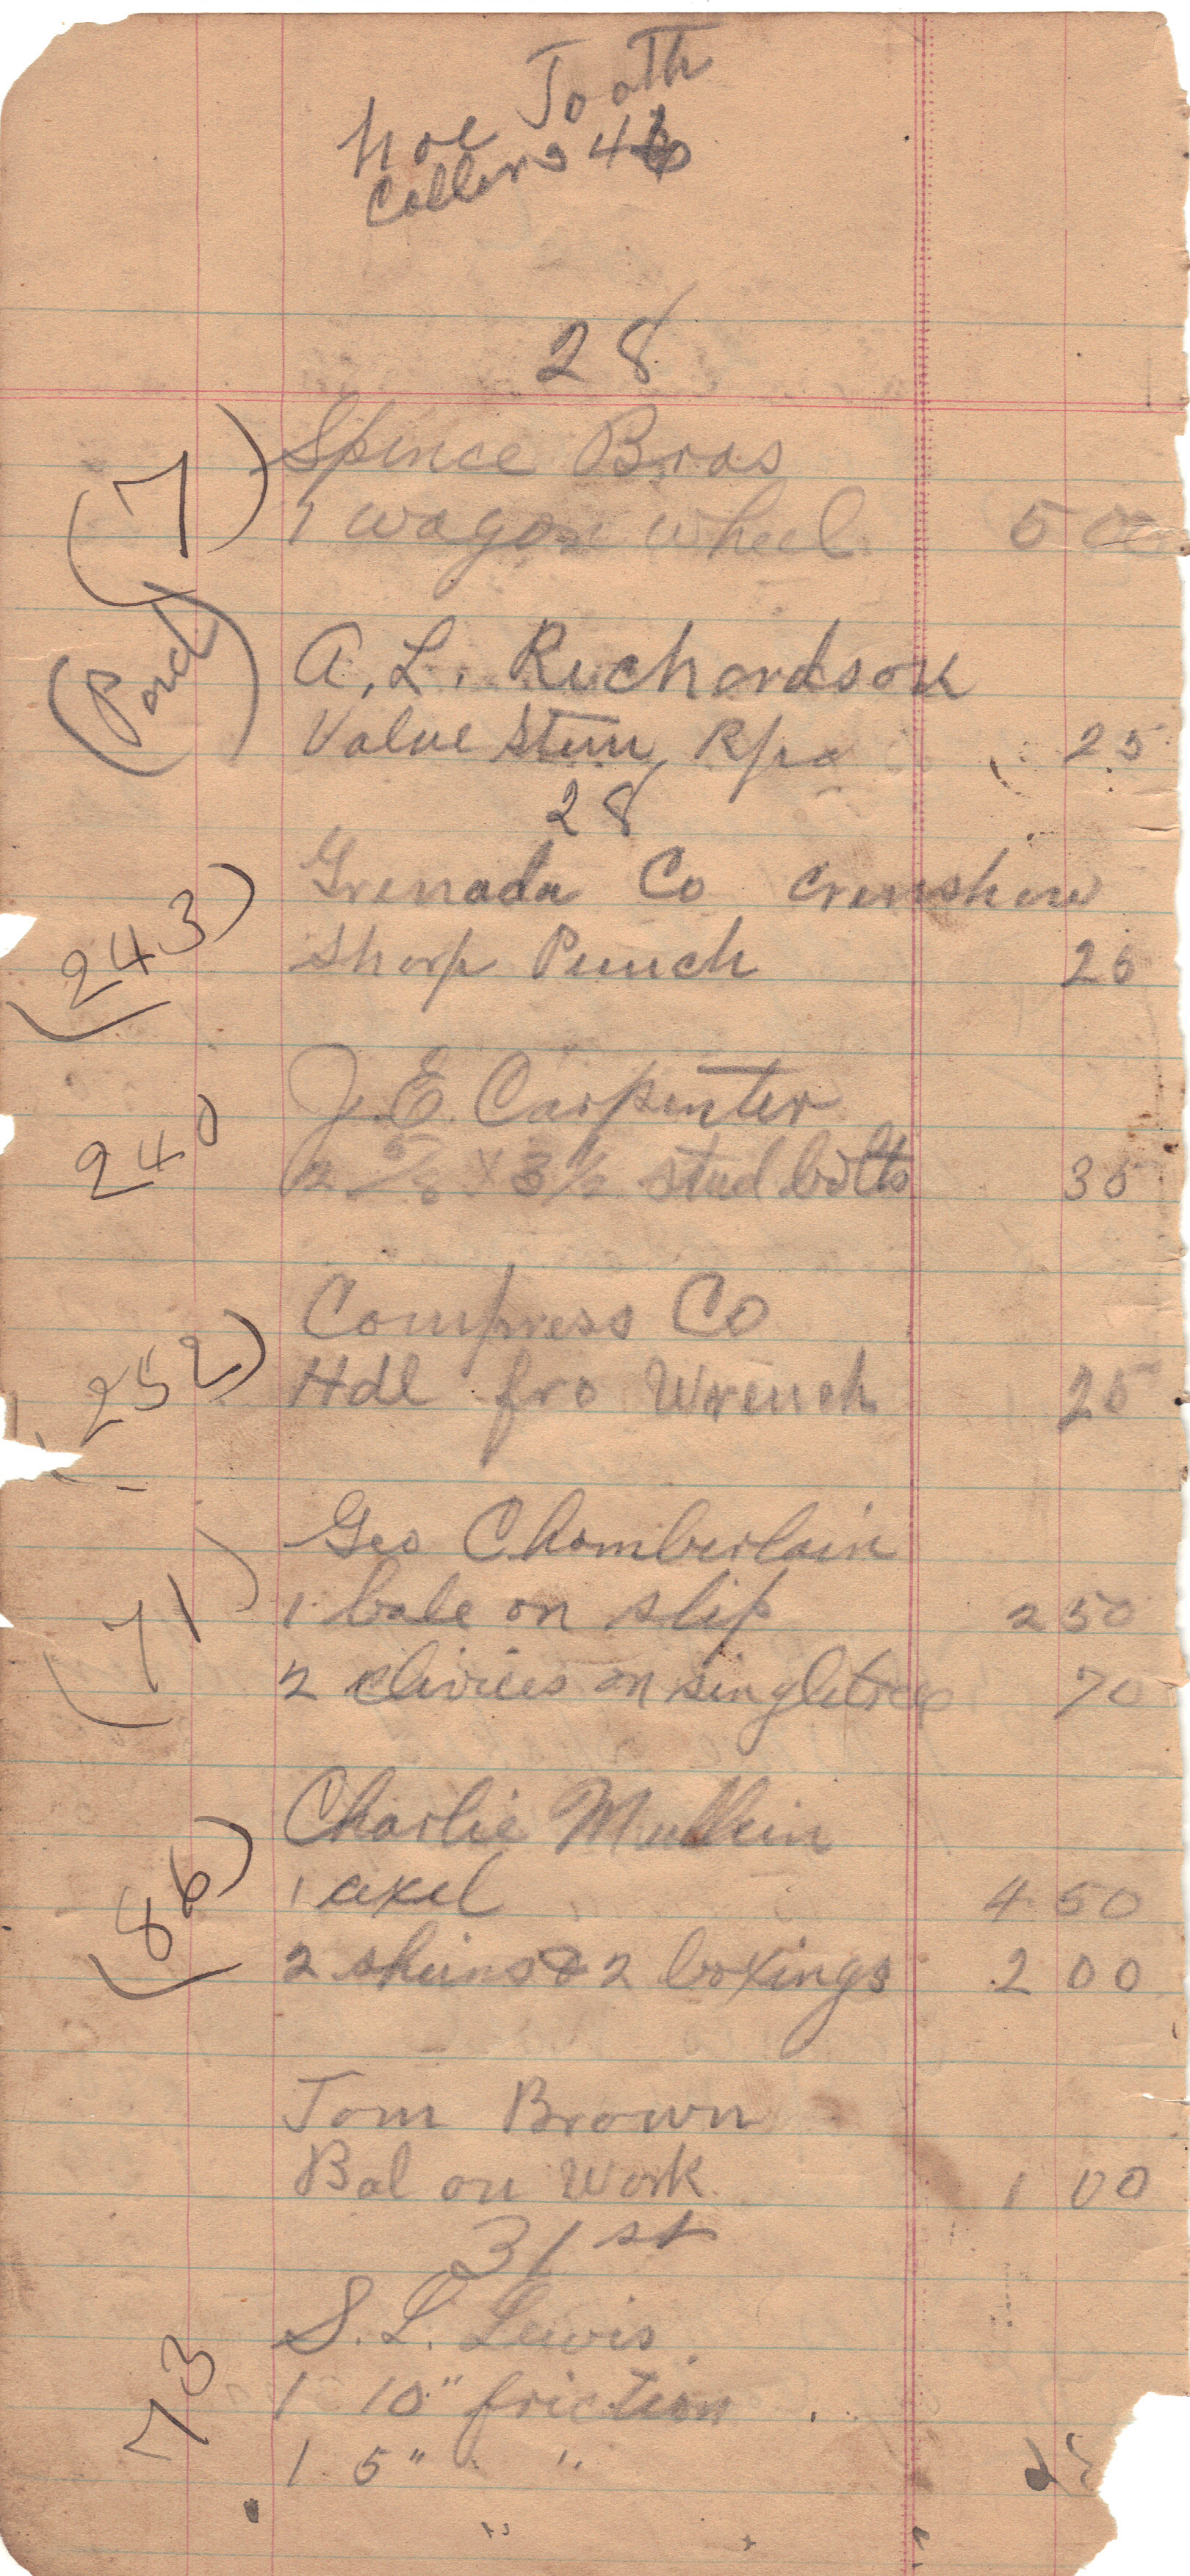 hoe Tooth
Collins 46
28
(7) Spince Bros
1 wagon wheel 5 00
(Pard) A. L. Richardson
Valve Stem Rpa 25
28
(243) Grenada Co Crenshaw
Sharp Punch 25
240 J. E. Carpenter
2 5/8 x 3 1/2 stud bolts 35
(252) Compress Co
Hdl fro Wrench 25
(71) Geo Chamberlain
1 bale on slip 2 50
2 clivices on singletree 70
(86) Charlie Mullein
1 axel 4 50
2 skeins & 2 boxings 2 00
Tom Brown
Bal on Work 1 00
31 st
73 S. L. Lewis
1 10" friction
1 5" " "